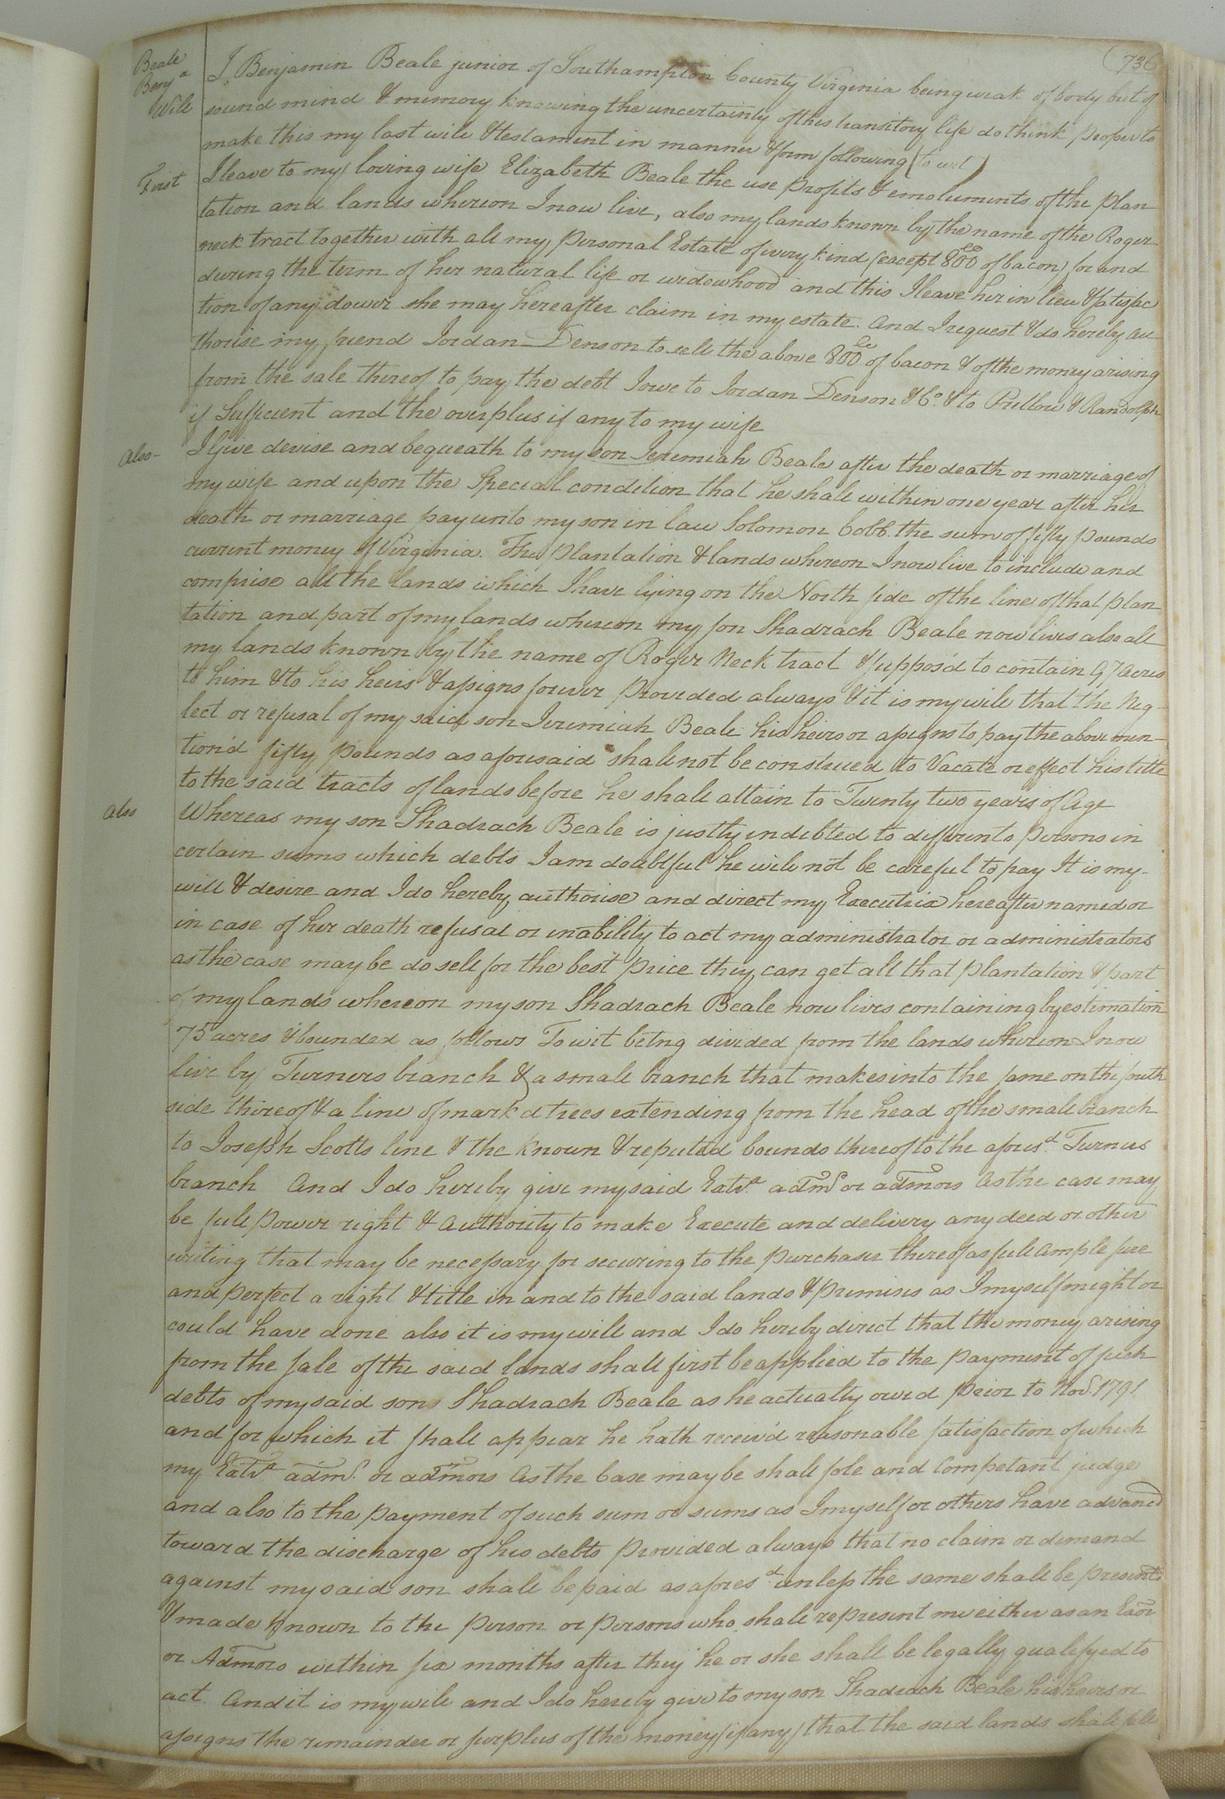 736
Beale
Benj.a
Will
I, Benjamin Beale junior of Southampton County Virginia being weak of body but of
sound mind & memory knowing the uncertainty of this transitory life do think proper to
make this my last will & testament in manner & form following (to wit)
First
I leave to my loving wife Elizabeth Beale the use profits & emoluments of the plan
tation and lands whereon I now live, also my lands known by the name of the Roger
neck tract together with all my personal Estate of every kind (except 800 of bacon) for and
during the term of her natural life or widowhood and this I leave her in lieu & satisfac
tion of any dower she may hereafter claim in my estate. And I request & do hereby au
thorise my friend Jordan Denson to sell the above 800 of bacon & of the money arising
from the sale thereof to pay the debt I owe to Jordan Denson & Co. & to Pretlow & Randolph
if Sufficient and the overplus if any to my wife
also
I Give devise and bequeath to my son Jeremiah Beale after the death or marriage of
my wife and upon the Special condition that he shall within one year after her
death or marriage pay unto my son in law Solomon Cobb the sum of fifty pounds
current money of Virginia. The plantation & lands whereon I now live to include and
comprise all the lands which I have lying on the North side of the line of that plan
tation and part of my lands whereon my son Shadrach Beale now lives also all
my lands known by the name of Roger Neck tract & suppos'd to contain 97 acres
to him & to his heirs & assigns forever Provided always & it is my will that the Neg-
lect or refusal of my said son Jeremiah Beale his heirs or assigns to pay the above men-
tion'd fifty pounds as aforesaid shall not be construed to Vacate or effect his title
to the said tracts of lands before he shall attain to Twenty two years of Age
also
Whereas my son Shadrach Beale is justly indebted to differents persons in
certain sums which debts I am doubtful he will not be careful to pay It is my-
will & desire and I do hereby authorise and direct my Executrix hereafter named or
in case of her death refusal or inability to act my administrator or administrators
as the case may be do sell for the best price they can get all that plantation & part
of my lands whereon my son Shadrach Beale now lives containing by estimation
75 acres & bounded as follows To wit being divided from the lands whereon I now
live by Turners branch & a small branch that makes into the same on the south
side thereof & a line of mark'd trees extending from the head of the small branch
to Joseph Scotts line & the known & reputed bounds thereof to the afores.d Turners
branch And I do hereby give my said Extr.x adm.r or admors As the case may
be full power right & authority to make Execute and delivery any deed or other
writing that may be necessary for securing to the purchaser thereof as full ample sure
and perfect a right & title in and to the said lands & premises as I myself might or
could have done also it is my will and I do hereby direct that the money arising
from the sale of the said lands shall first be applied to the payment of such
debts of my said son Shadrach Beale as he actually owed prior to Nov.r 1791
and for which it shall appear he hath receiv'd reasonable satisfaction of which
my Extr.x adm.r or admors As the Case may be shall sole and Competant judge
and also to the payment of such sum or sums as I myself or others have advanc'd
toward the discharge of his debts Provided always that no claim or demand
against my said son shall be paid as afores.d unless the same shall be presented
& made known to the person or persons who shall represent me either as an Exor
or Admors within six months after they he or she shall be legally qualifyed to
act. And it is my will and I do hereby give to my son Shadrach Beale his heirs or
assigns the remainder or surplus of the money (if any) that the said lands shall sell